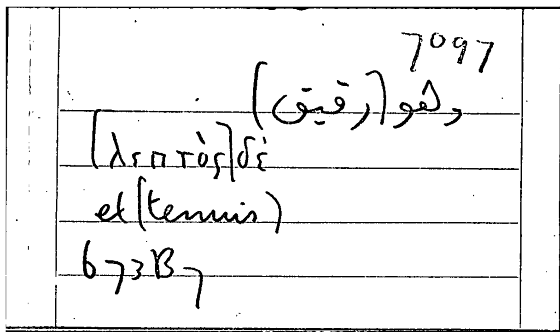 7097
وهو (رقيق)
[λεπτὸς] δὲ
et (tenuis)
673B7